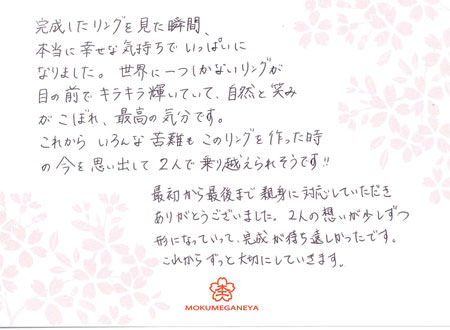 完成したリングを見た瞬間、
本当に幸せな気持ちでいっぱいに
なりました。世界に一つしかないリングが
目の前でキラキラ輝いていて、自然と笑み
がこぼれ、最高の気分です。
これからいろんな苦難もこのリングを作った時
の今を思い出して2人で乗り越えられそうです!!
最初から最後まで親身に対応していただき
ありがとうございました。2人の想いが少しずつ
形になっていって、完成が待ち遠しかったです。
これからずっと大切にしていきます。
MOKUMEGANEYA